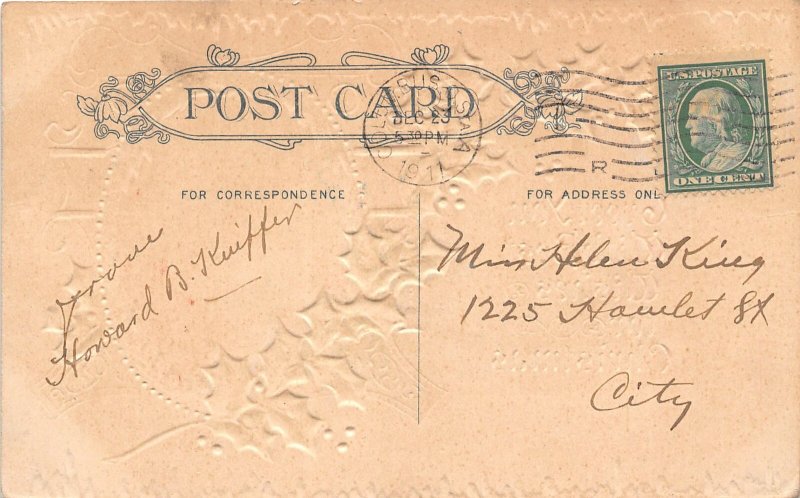 POST CARD
COLUMBUS, O.
DEC 23
5-30 PM
1911
R
U.S. POSTAGE
ONE CENT
FOR CORRESPONDENCE
FOR ADDRESS ONL
From
Howard B. Kuiffer
Miss Helen King
1225 Hamlet St
City
Christmas